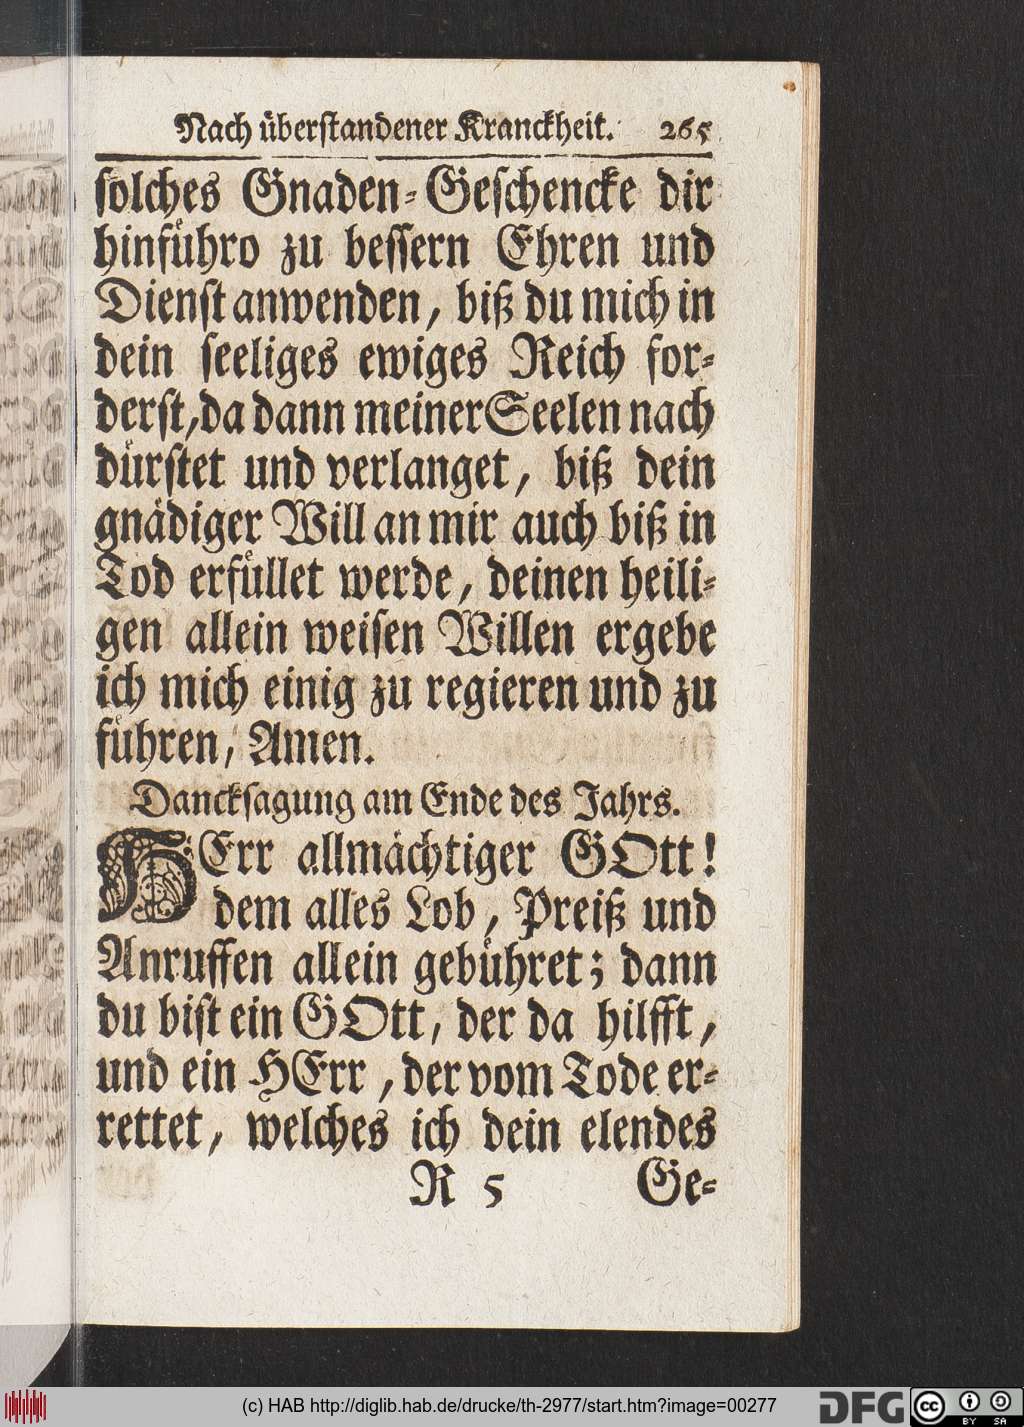 Nach überstandener Kranckheit. 265
solches Gnaden-Geschencke dir
hinführo zu bessern Ehren und
Dienst anwenden, biß du mich in
dein seeliges ewiges Reich for-
derst, da dann meiner Seelen nach
dürstet und verlanget, biß dein
gnädiger Will an mir auch biß in
Tod erfüllet werde, deinen heili-
gen allein weisen Willen ergebe
ich mich einig zu regieren und zu
führen, Amen.
Dancksagung am Ende des Jahrs.
HErr allmächtiger GOtt!
dem alles Lob, Preiß und
Anruffen allein gebühret; dann
du bist ein GOtt, der da hilfft,
und ein HErr, der vom Tode er-
rettet, welches ich dein elendes
R 5 Ge-
(c) HAB http://diglib.hab.de/drucke/th-2977/start.htm?image=00277
DFG cc BY SA